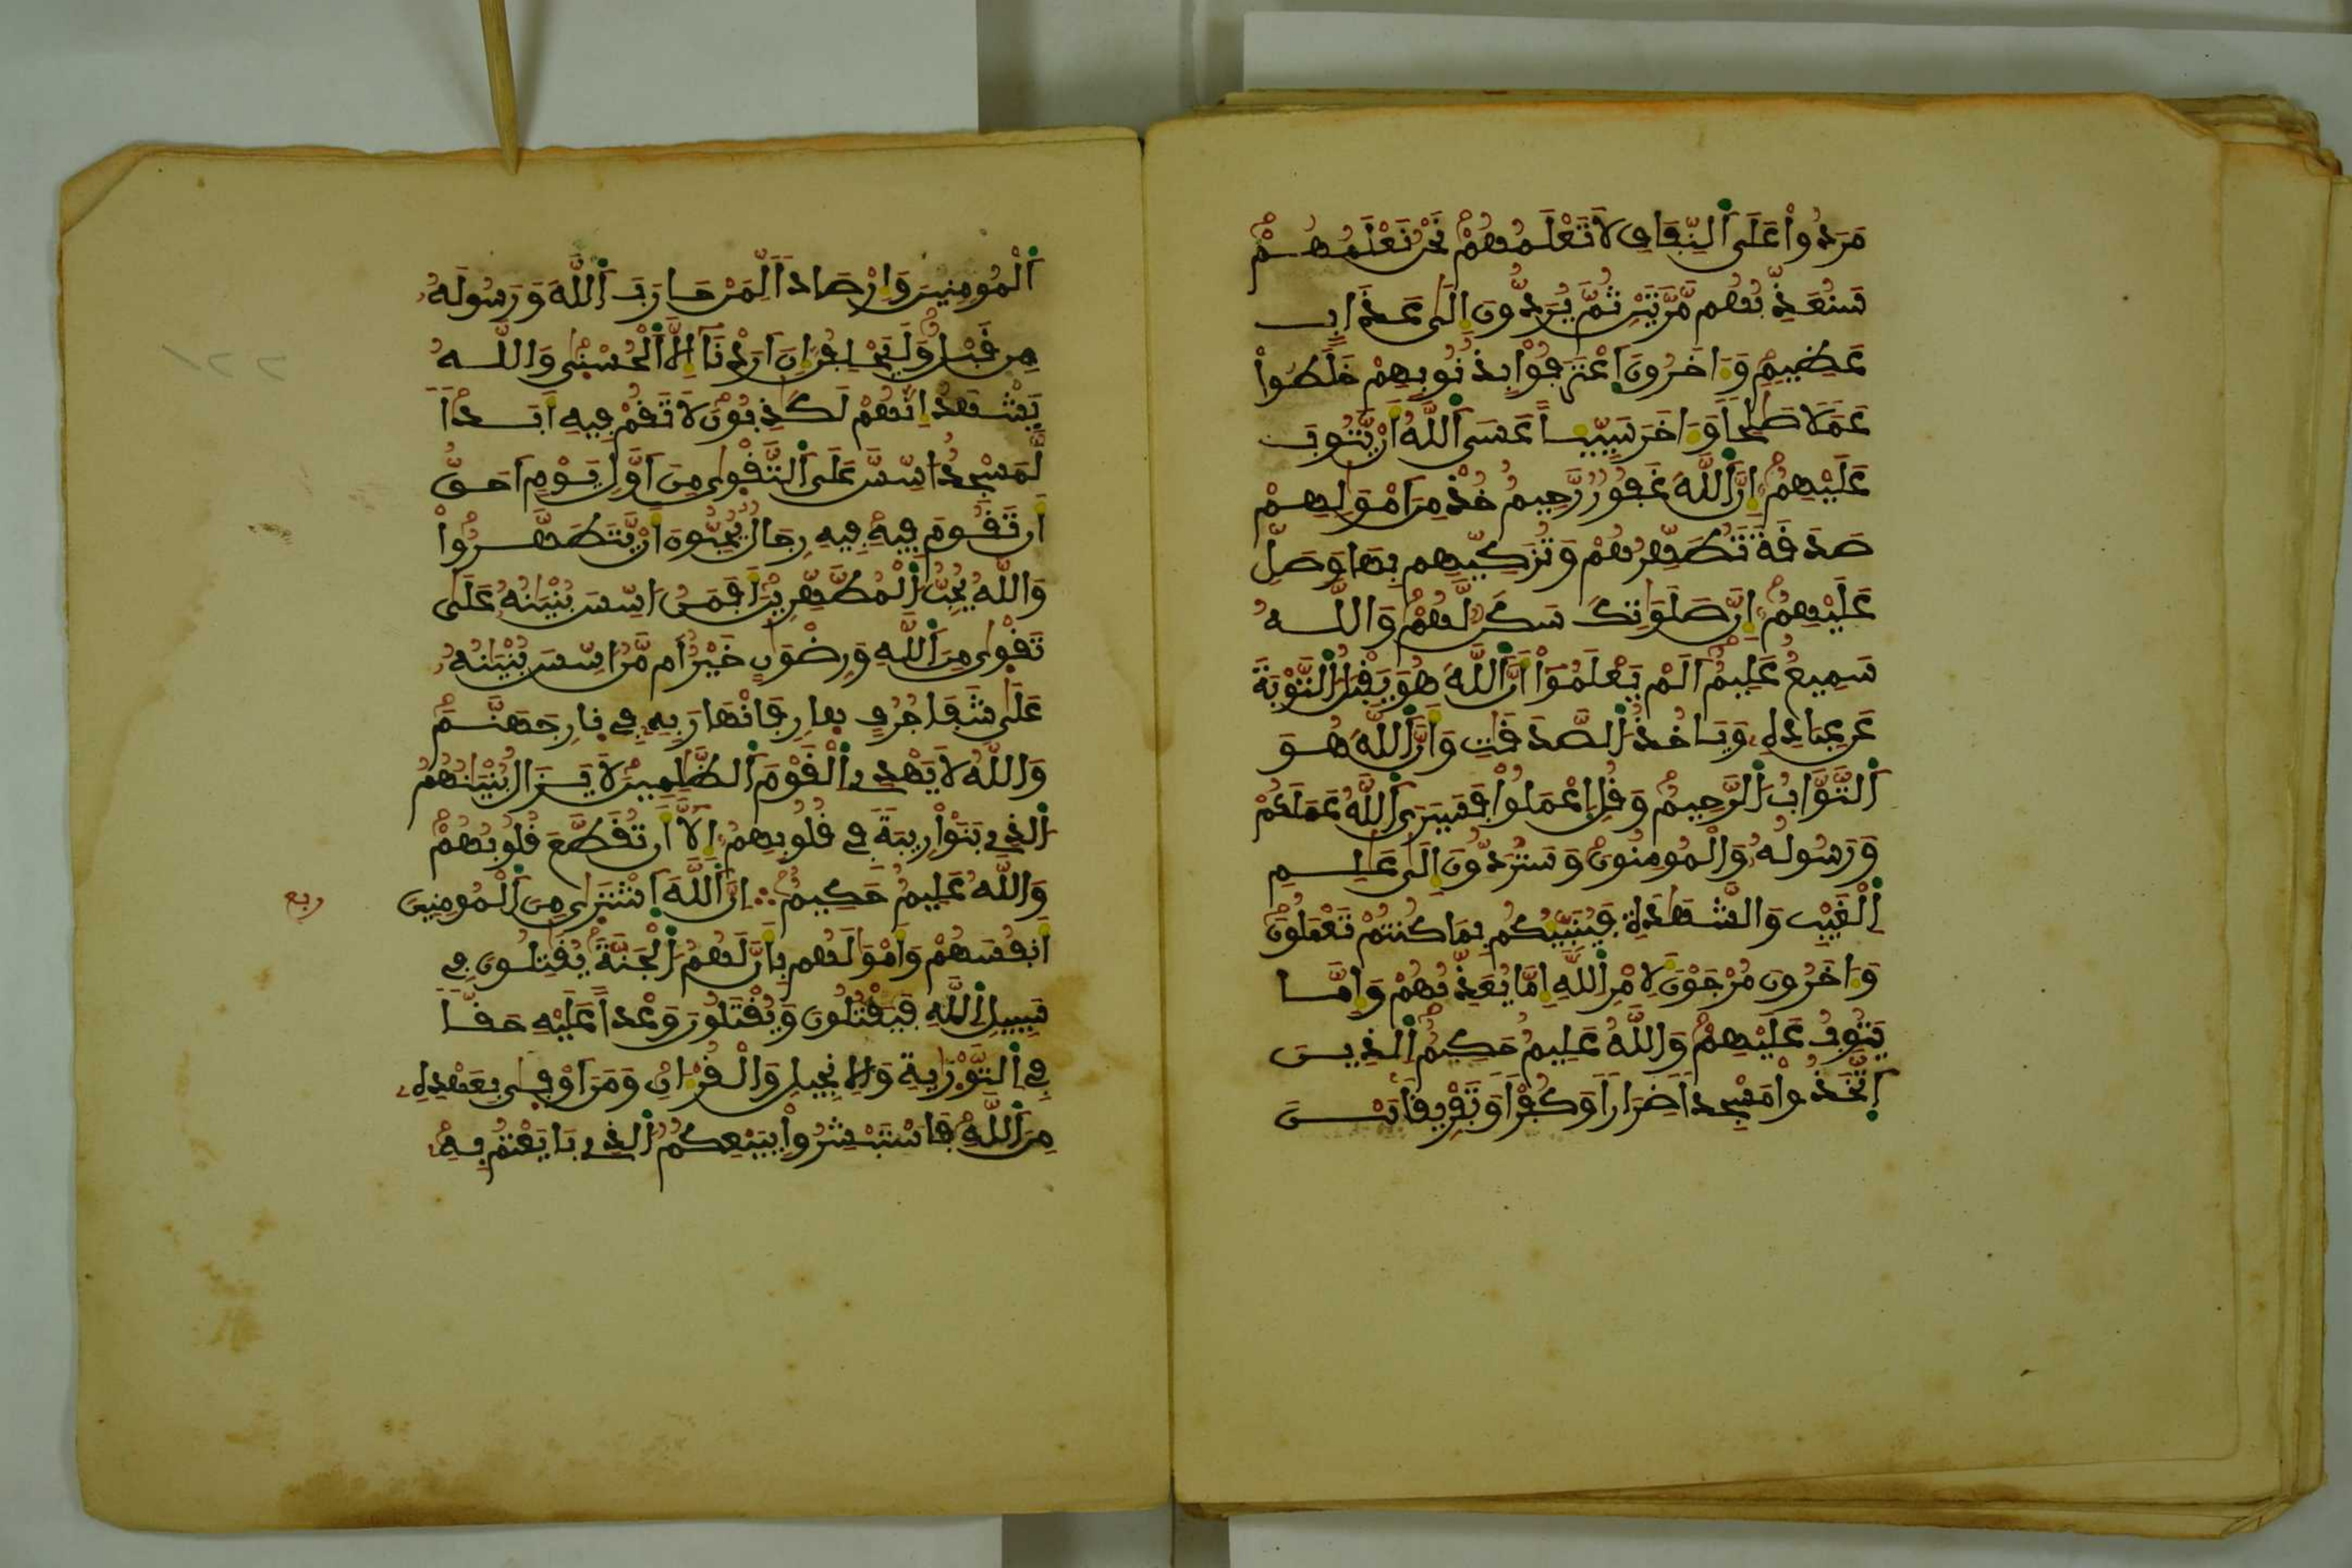 مَرَدُواْ عَلَى اَلنِّفَاقِ لَا تَعْلَمُهُمْ نَحْنُ نَعْلَمُهُمْ
سَنُعَذِّبُهُم مَّرَّتَيْنِ ثُمَّ يُرَدُّونَ إِلَىٰ عَذَابٍ
عَظِيمٍ وَءَاخَرُونَ اَعْتَرَفُواْ بِذُنُوبِهِمْ خَلَطُواْ
عَمَلًا صَٰلِحًا وَءَاخَرَ سَيِّئًا عَسَى اَللَّهُ أَنْ يَّتُوبَ
عَلَيْهِمُ إِنَّ اَللَّهَ غَفُورٌ رَّحِيمٌ خُذْ مِنَ اَمْوَٰلِهِمْ
صَدَقَةً تُطَهِّرُهُمْ وَتُزَكِّيهِم بِهَا وَصَلِّ
عَلَيْهِمُ إِنَّ صَلَوَٰتِكَ سَكَنٌ لَّهُمْ وَاللَّهُ
سَمِيعٌ عَلِيمٌ اَلَمْ يَعْلَمُواْ أَنَّ اَللَّهَ هُوَ يَقْبَلُ اُلتَّوْبَةَ
عَنْ عِبَادِهِ وَيَاخُذُ اُلصَّدَقَٰتِ وَأَنَّ اَللَّهَ هُوَ
اَلتَّوَّابُ اُلرَّحِيمُ وَقُلِ اِعْمَلُواْ فَسَيَرَى اَللَّهُ عَمَلَكُمْ
وَرَسُولُهُ وَالْمُومِنُونَ وَسَتُرَدُّونَ إِلَىٰ عَٰلِمِ
اِلْغَيْبِ وَالشَّهَٰدَةِ فَيُنَبِّئُكُم بِمَا كُنتُمْ تَعْمَلُونَ
وَءَاخَرُونَ مُرْجَوْنَ لِأَمْرِ اِللَّهِ إِمَّا يُعَذِّبُهُمْ وَإِمَّا
يَتُوبُ عَلَيْهِمْ وَاللَّهُ عَلِيمٌ حَكِيمٌ اِلذِينَ
اَتَّخَذُواْ مَسْجِدًا ضِرَارًا وَكُفْرًا وَتَفْرِيقًا بَيْنَ
اَلْمُومِنِينَ وَإِرْصَادًا لِّمَنْ حَارَبَ اَللَّهَ وَرَسُولَهُ
مِن قَبْلُ وَلَيَحْلِفُنَّ إِنَ اَرَدْنَا إِلَّا اَلْحُسْنَىٰ وَاللَّهُ
يَشْهَدُ إِنَّهُمْ لَكَٰذِبُونَ لَا تَقُمْ فِيهِ أَبَدًا
لَّمَسْجِدٌ اُسِّسَ عَلَى اَلتَّقْوَىٰ مِنَ اَوَّلِ يَوْمٍ اَحَقُّ
أَن تَقُومَ فِيهِ فِيهِ رِجَالٌ يُحِبُّونَ أَنْ يَّتَطَهَّرُواْ
وَاللَّهُ يُحِبُّ اُلْمُطَّهِّرِينَ أَفَمَنُ اسِّسَ بُنْيَٰنُهُ عَلَىٰ
تَقْوَىٰ مِنَ اَللَّهِ وَرِضْوَٰنٍ خَيْرٌ أَم مَّنُ اسِّسَ بُنْيَٰنُهُ
عَلَىٰ شَفَا جُرُفٍ هِارٍ فَانْهَارَ بِهِ فِي نِارِ جَهَنَّمَ
وَاللَّهُ لَا يَهْدِي اِلْقَوْمَ اَلظَّٰلِمِينَ لَا يَزَالُ بُنْيَٰنُهُمُ
اُلذِي بَنَوْاْ رِيبَةً فِي قُلُوبِهِمُ إِلَّا أَن تُقَطَّعَ قُلُوبُهُمْ
وَاللَّهُ عَلِيمٌ حَكِيمٌ ∴ إِنَّ اَللَّهَ اَشْتَرَىٰ مِنَ اَلْمُومِنِينَ
ربع
أَنفُسَهُمْ وَأَمْوَٰلَهُم بِأَنَّ لَهُمُ اُلْجَنَّةَ يُقَٰتِلُونَ فِي
سَبِيلِ اِللَّهِ فَيَقْتُلُونَ وَيُقْتَلُونَ وَعْدًا عَلَيْهِ حَقًّا
فِي اِلتَّوْرَىٰةِ وَالِانجِيلِ وَالْقُرْءَانِ وَمَنَ اَوْفَىٰ بِعَهْدِهِ
مِنَ اَللَّهِ فَاسْتَبْشِرُواْ بِبَيْعِكُمُ اُلذِي بَايَعْتُم بِهِ
١٢٢